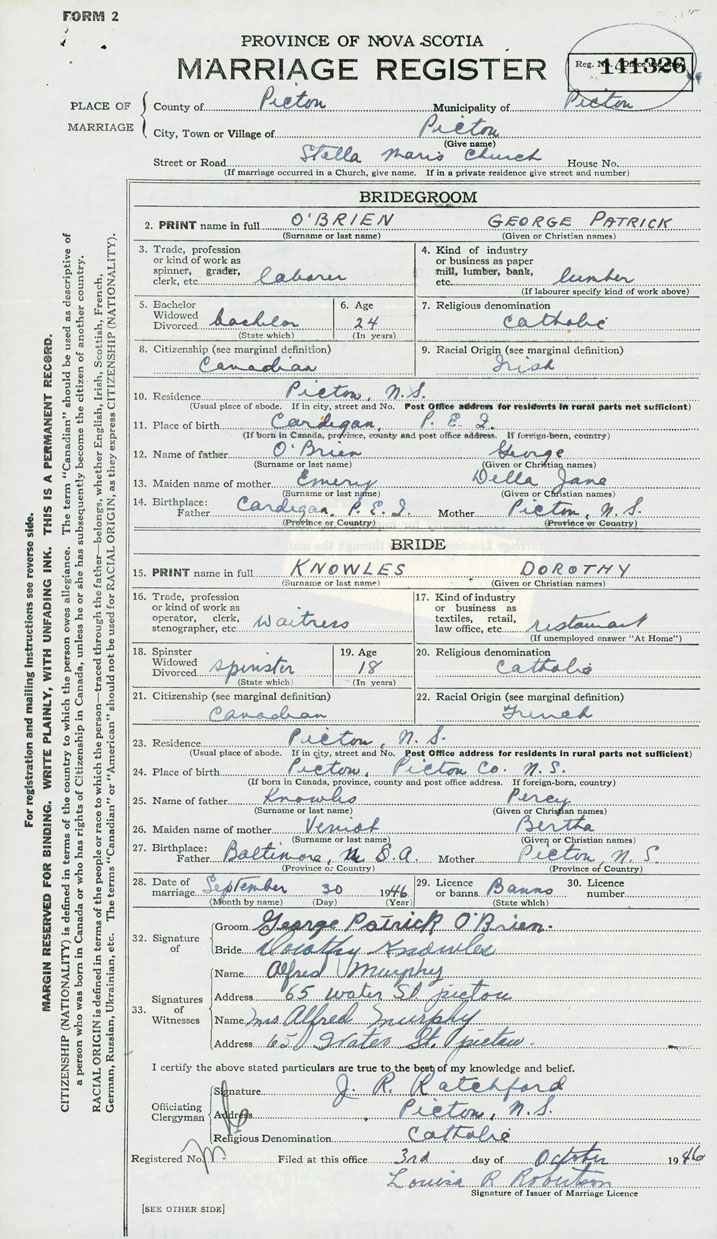 FORM 2
PROVINCE OF NOVA SCOTIA
MARRIAGE REGISTER
Reg. No. 141326
PLACE OF MARRIAGE
County of Picton Municipality of Picton
City, Town or Village of Picton
(Give name)
Street or Road Stella Maris Church House No.
(If marriage occurred in a Church, give name. If in a private residence give street and number)
BRIDEGROOM
2. PRINT name in full O'BRIEN GEORGE PATRICK
(Surname or last name) (Given or Christian names)
3. Trade, profession or kind of work as spinner, grader, clerk, etc. laborer
4. Kind of industry or business as paper mill, lumber, bank, etc. lumber
(If labourer specify kind of work above)
5. Bachelor Widowed Divorced bachelor
(State which)
6. Age 24
(In years)
7. Religious denomination
Catholic
8. Citizenship (see marginal definition)
Canadian
9. Racial Origin (see marginal definition)
Irish
10. Residence Picton, N.S.
(Usual place of abode. If in city, street and No. Post Office address for residents in rural parts not sufficient)
11. Place of birth Cardigan, P.E.I.
(If born in Canada, province, county and post office address. If foreign-born, country)
12. Name of father O'Brien George
(Surname or last name) (Given or Christian names)
13. Maiden name of mother Emery Della Jane
(Surname or last name) (Given or Christian names)
14. Birthplace: Father Cardigan, P.E.I. Mother Picton, N.S.
(Province or Country) (Province or Country)
BRIDE
15. PRINT name in full KNOWLES DOROTHY
(Surname or last name) (Given or Christian names)
16. Trade, profession or kind of work as operator, clerk, stenographer, etc. waitress
17. Kind of industry or business as textiles, retail, law office, etc. restaurant
(If unemployed answer "At Home")
18. Spinster Widowed Divorced spinster
(State which)
19. Age 18
(In years)
20. Religious denomination
Catholic
21. Citizenship (see marginal definition)
Canadian
22. Racial Origin (see marginal definition)
French
23. Residence Picton, N.S.
(Usual place of abode. If in city, street and No. Post Office address for residents in rural parts not sufficient)
24. Place of birth Picton, Picton Co. N.S.
(If born in Canada, province, county and post office address. If foreign-born, country)
25. Name of father Knowles Percy
(Surname or last name) (Given or Christian names)
26. Maiden name of mother Veniot Bertha
(Surname or last name) (Given or Christian names)
27. Birthplace: Father Baltimore, U.S.A. Mother Picton, N.S
(Province or Country) (Province or Country)
28. Date of marriage September 30 1946
(Month by name) (Day) (Year)
29. Licence or banns Banns
(State which)
30. Licence number
32. Signature of
Groom George Patrick O'Brien
Bride Dorothy Knowles
33. Signatures of Witnesses
Name Alfred Murphy
Address 65 Water St picton
Name Mrs Alfred Murphy
Address 65 Water St. picton
I certify the above stated particulars are true to the best of my knowledge and belief.
Officiating Clergyman
Signature J. R. Ratchford
Address Picton, N.S.
Religious Denomination Catholic
Registered No. Filed at this office 3rd day of October 1946
Louisa R Robertson
Signature of Issuer of Marriage Licence
[SEE OTHER SIDE]
For registration and mailing instructions see reverse side.
MARGIN RESERVED FOR BINDING. WRITE PLAINLY, WITH UNFADING INK. THIS IS A PERMANENT RECORD.
CITIZENSHIP (NATIONALITY) is defined in terms of the country to which the person owes allegiance. The term "Canadian" should be used as descriptive of
a person who was born in Canada or who has rights of Citizenship in Canada, unless he or she has subsequently become the citizen of another country.
RACIAL ORIGIN is defined in terms of the people or race to which the person—traced through the father—belongs, whether English, Irish, Scottish, French,
German, Russian, Ukrainian, etc. The terms "Canadian" or "American" should not be used for RACIAL ORIGIN, as they express CITIZENSHIP (NATIONALITY).